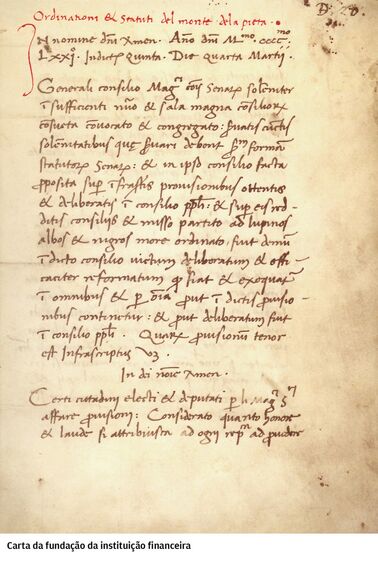 Ordinationi et Statuti del monte dela pieta.
D: 20.
N nomine dnj Amen. Año dnj M.mo cccc.mo
Lxxij. Indictẽ quinta. Die quarta Martij.
Generali consilio Magci cõis Senarꝝ solẽniter
ĩ sufficenti nũo et sala magna cõsiliorꝝ
cõsueta cõvocato et congregato: servatis cũctis
solẽnitatibus que servari debent scdm formam
statutorꝝ Senarꝝ: et in ipso consilio facta
proposita super infrascriptis provisionibus obtentis
et deliberatis ĩ consilio pplì: et super eis red-
ditis consiliis et misso partito ad lupinos
albos et nigros more ordinato, fuit demũ
ĩ dicto consilio victum deliberatum et effi-
caciter reformatum quod fiat et exequatur
ĩ omnibus et per oĩa prout ĩ dictis provisio-
nibus continetur: et prout deliberatum fuit
ĩ consilio pplì. Quarꝝ provisionum tenor
est Infrascriptus vz.
In dei noĩe Amen.
Certi cittadini electi et deputati per li Magci Sri
affare provisioni: Considerato quanto honore
et laude si attribuisca ad ogni repca ad provedere
Carta da fundação da instituição financeira